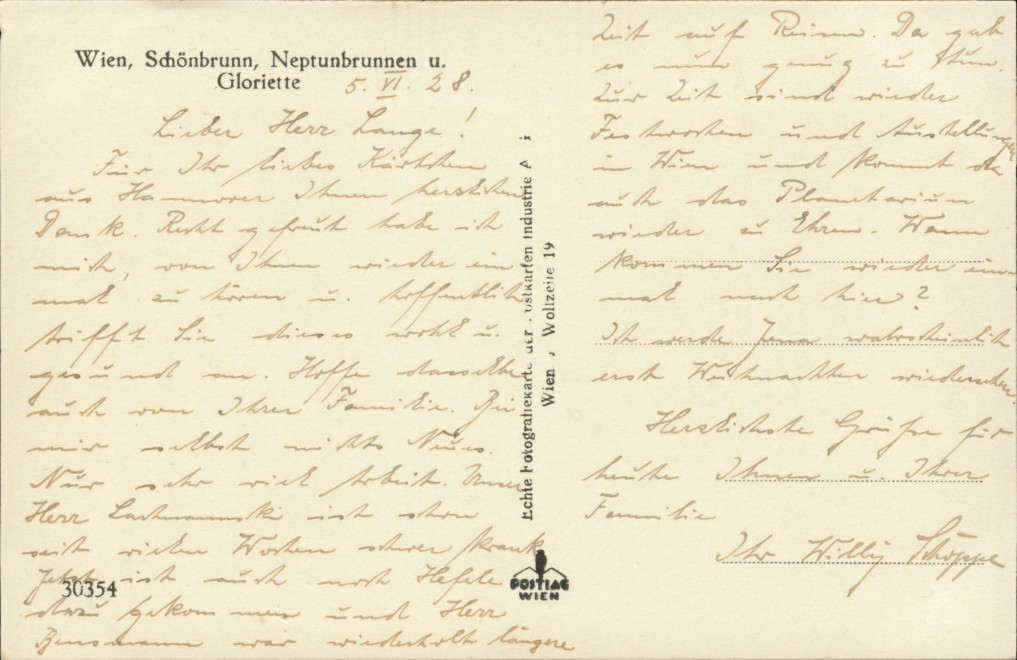 Wien, Schönbrunn, Neptunbrunnen u.
Gloriette
5. VI. 28.
Lieber Herr Lange!
Für Ihr liebes Kärtchen
aus Hannover Ihnen herzlichen
Dank. Recht gefreut habe ich
mich, von Ihnen wieder ein
mal zu hören u. hoffentlich
trifft Sie dieses wohl u.
gesund an. Hoffe dasselbe
auch von Ihrer Familie. Bei
mir selbst nichts Neues.
Nur sehr viel Arbeit. Unser
Herr Lachmannski ist schon
seit vielen Wochen schwer krank
Jetzt ist auch noch Hefele
dazu gekommen und Herr
Bensmann war wiederholt längere
30354
Echte Fotografiekarte der Postkarten Industrie A
Wien, Wollzeile 19
POSTIAG
WIEN
Zeit auf Reisen. Da gab
es nun genug zu tun.
Zur Zeit sind wieder
Festwochen und Austellungen
in Wien und kommt da
auch das Planetarium
wieder zu Ehren. Wann
kommen Sie wieder ein
mal nach hier?
Ich werde Jena wahrscheinlich
erst Weihnachten wiedersehen.
Herzlichste Grüße für
heute Ihnen u. Ihrer
Familie
Ihr Willy Schöppe